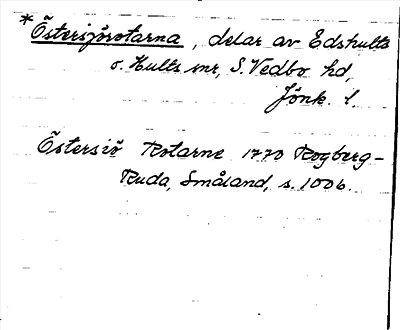 *Östersjörotarna, delar av Edshults
o. Hults snr, S. Vedbo hd,
Jönk. l.
Östersiö Rotarne 1770 Rogberg-
Ruda, Småland, s. 1006.